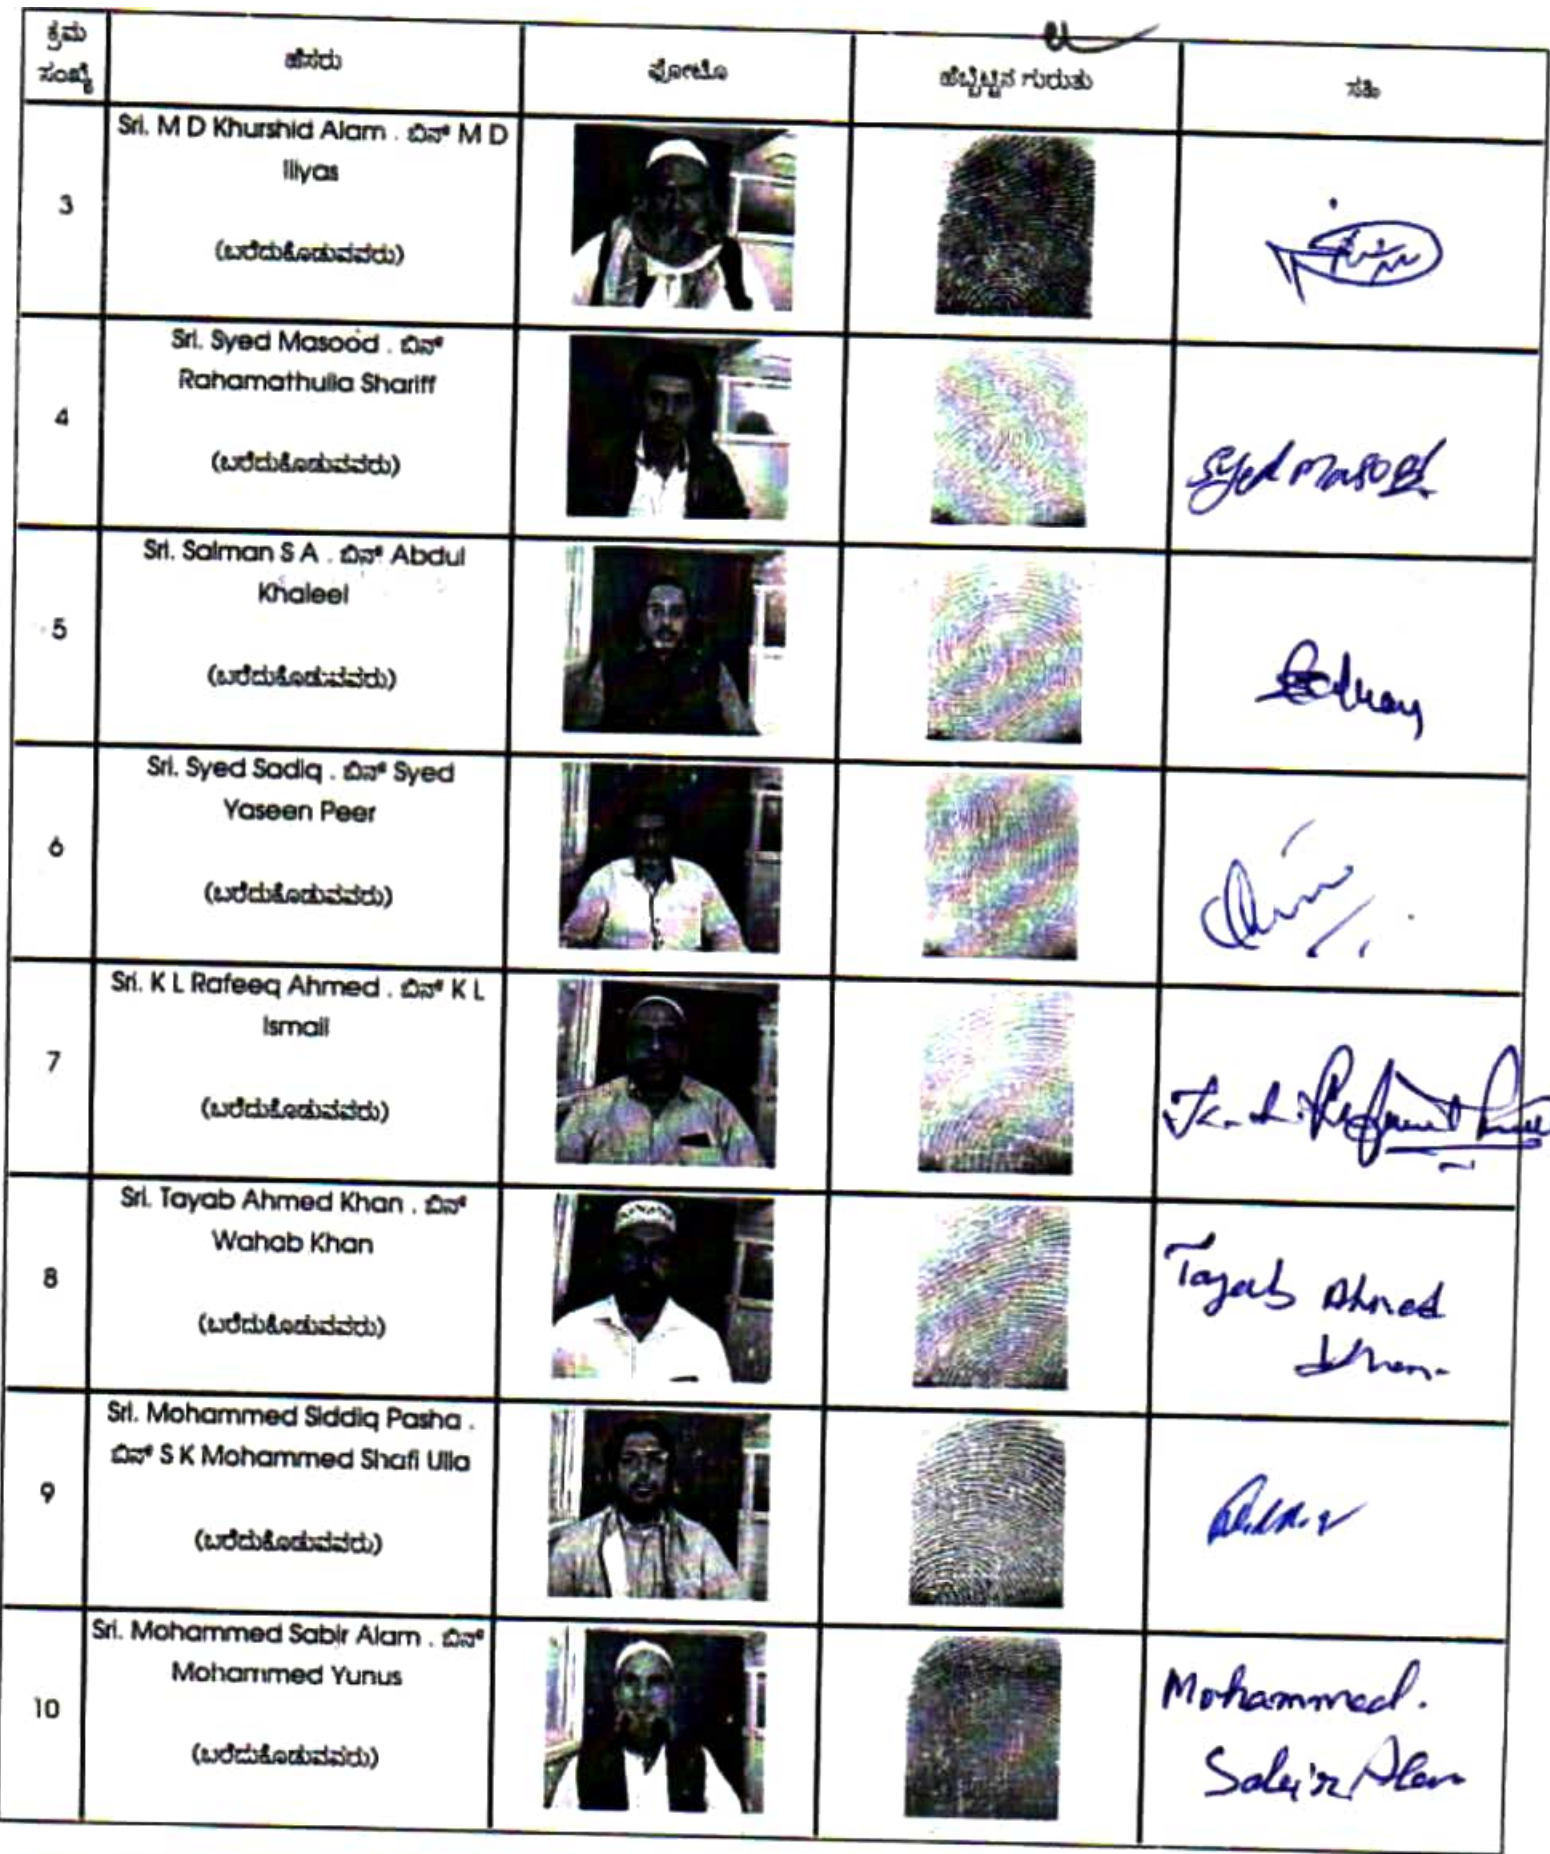 ಕ್ರಮ ಸಂಖ್ಯೆ
ಹೆಸರು
ಫೋಟೊ
ಹೆಬ್ಬೆಟ್ಟಿನ ಗುರುತು
ಸಹಿ
3
Sri. M D Khurshid Alam . ಬಿನ್ M D
Illyas
(ಬರೆದುಕೊಡುವವರು)
4
Sri. Syed Masood . ಬಿನ್
Rahamathulla Shariff
(ಬರೆದುಕೊಡುವವರು)
Syed Masood
5
Sri. Salman S A . ಬಿನ್ Abdul
Khaleel
(ಬರೆದುಕೊಡುವವರು)
6
Sri. Syed Sadiq . ಬಿನ್ Syed
Yaseen Peer
(ಬರೆದುಕೊಡುವವರು)
7
Sri. K L Rafeeq Ahmed . ಬಿನ್ K L
Ismail
(ಬರೆದುಕೊಡುವವರು)
8
Sri. Tayab Ahmed Khan . ಬಿನ್
Wahab Khan
(ಬರೆದುಕೊಡುವವರು)
Tayab Ahmed
Khan.
9
Sri. Mohammed Siddiq Pasha .
ಬಿನ್ S K Mohammed Shafi Ulla
(ಬರೆದುಕೊಡುವವರು)
10
Sri. Mohammed Sabir Alam . ಬಿನ್
Mohammed Yunus
(ಬರೆದುಕೊಡುವವರು)
Mohammed.
Sabir Alam